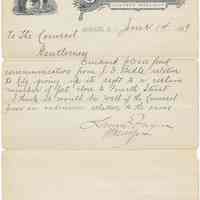 June 14
To The Council
Gentlemen
Enclosed please find
communication from J. E. relative
to City giving up its right to a certain
number of feet close to Fourth Street.
I think it would be well if the Council
give an expression relative to the same
Mayor